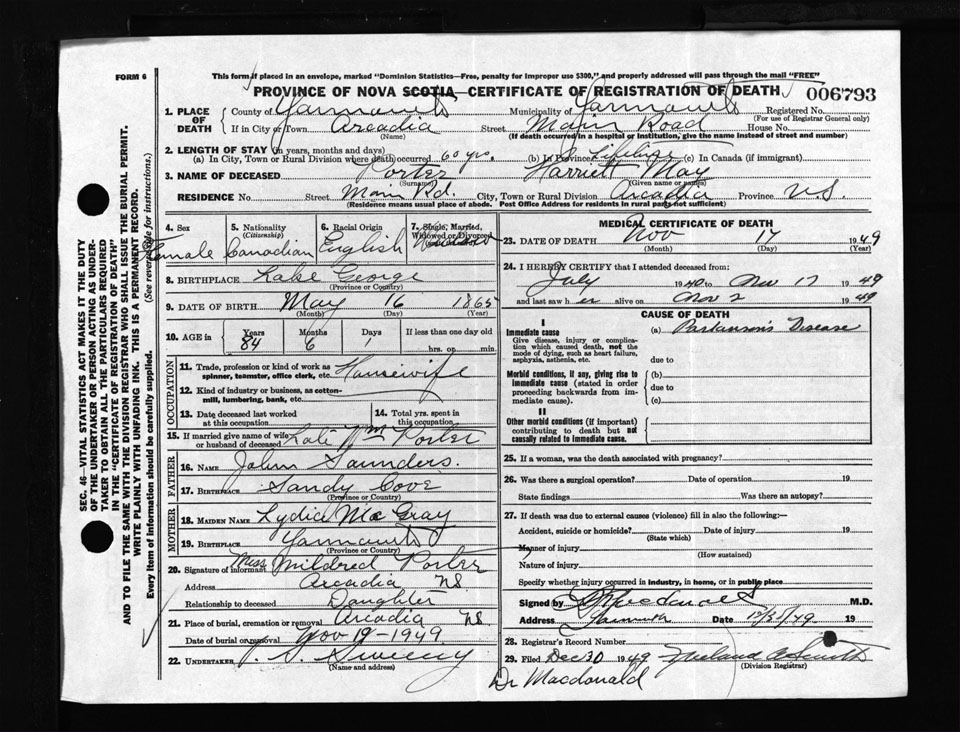 FORM 6
This form if placed in an envelope, marked "Dominion Statistics—Free, penalty for improper use $300," and properly addressed will pass through the mail "FREE"
PROVINCE OF NOVA SCOTIA—CERTIFICATE OF REGISTRATION OF DEATH
006793
1. PLACE OF DEATH
County of Yarmouth Municipality of Yarmouth Registered No.
(For use of Registrar General only)
If in City or Town Arcadia Street Main Road House No.
(Name) (If death occurred in a hospital or institution, give the name instead of street and number)
2. LENGTH OF STAY (in years, months and days)
(a) In City, Town or Rural Division where death occurred 60 yrs. (b) In Province Lifetime (c) In Canada (if immigrant)
3. NAME OF DECEASED Porter Harriett May
(Surname) (Given name or names)
RESIDENCE No. Street Main Rd. City, Town or Rural Division Arcadia Province N.S.
(Residence means usual place of abode. Post Office Address for residents in rural parts not sufficient)
4. Sex
Female
5. Nationality
(Citizenship)
Canadian
6. Racial Origin
English
7. Single, Married, Widowed or Divorced
8. BIRTHPLACE Lake George
(Province or Country)
9. DATE OF BIRTH May 16 1865
(Month) (Day) (Year)
10. AGE in Years Months Days If less than one day old
84 6 1 hrs. or min.
OCCUPATION
11. Trade, profession or kind of work as spinner, teamster, office clerk, etc. Housewife
12. Kind of industry or business, as cotton-mill, lumbering, bank, etc.
13. Date deceased last worked at this occupation
14. Total yrs. spent in this occupation
15. If married give name of wife or husband of deceased Late Wm Porter
FATHER
16. NAME John Saunders.
17. BIRTHPLACE Sandy Cove
(Province or Country)
MOTHER
18. MAIDEN NAME Lydia McGray
19. BIRTHPLACE Yarmouth
(Province or Country)
20. Signature of informant Miss Mildred Porter
Address Arcadia NS
Relationship to deceased Daughter
21. Place of burial, cremation or removal Arcadia NS.
Date of burial or removal Nov 19-1949
22. UNDERTAKER V. S. Sweeny
(Name and address)
MEDICAL CERTIFICATE OF DEATH
23. DATE OF DEATH Nov 17 1949
(Month) (Day) (Year)
24. I HEREBY CERTIFY that I attended deceased from:
July 1940 to Nov 17 1949
and last saw her alive on Nov 2 1949
CAUSE OF DEATH
I
Immediate cause (a) Parkinson's Disease
Give disease, injury or complication which caused death, not the mode of dying, such as heart failure, asphyxia, asthenia, etc.
due to
Morbid conditions, if any, giving rise to immediate cause (stated in order proceeding backwards from immediate cause).
(b)
due to
(c)
II
Other morbid conditions (if important) contributing to death but not causally related to immediate cause.
25. If a woman, was the death associated with pregnancy?
26. Was there a surgical operation? Date of operation 19
State findings Was there an autopsy?
27. If death was due to external causes (violence) fill in also the following:—
Accident, suicide or homicide? Date of injury 19
(State which)
Manner of injury
(How sustained)
Nature of injury
Specify whether injury occurred in industry, in home, or in public place
Signed by M.D.
Address Yarmouth Date 12/31/49 19
28. Registrar's Record Number
29. Filed Dec 30 1949
(Division Registrar)
Dr Macdonald
SEC. 46—VITAL STATISTICS ACT MAKES IT THE DUTY
OF THE UNDERTAKER OR PERSON ACTING AS UNDER-
TAKER TO OBTAIN ALL THE PARTICULARS REQUIRED
IN THE "CERTIFICATE OF REGISTRATION OF DEATH"
AND TO FILE THE SAME WITH THE DIVISION REGISTRAR WHO SHALL ISSUE THE BURIAL PERMIT.
WRITE PLAINLY WITH UNFADING INK. THIS IS A PERMANENT RECORD.
Every item of information should be carefully supplied. (See reverse side for instructions.)